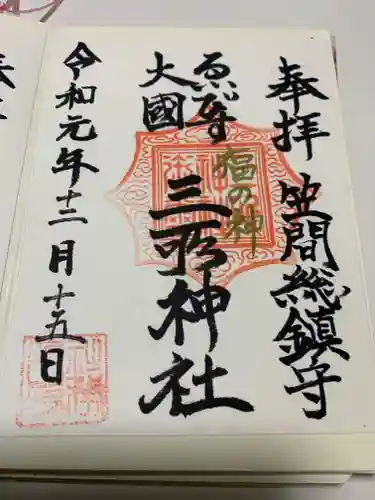 奉拝 笠間総鎮守
大國
恵比寿
三所神社
福の神
令和元年十二月十五日